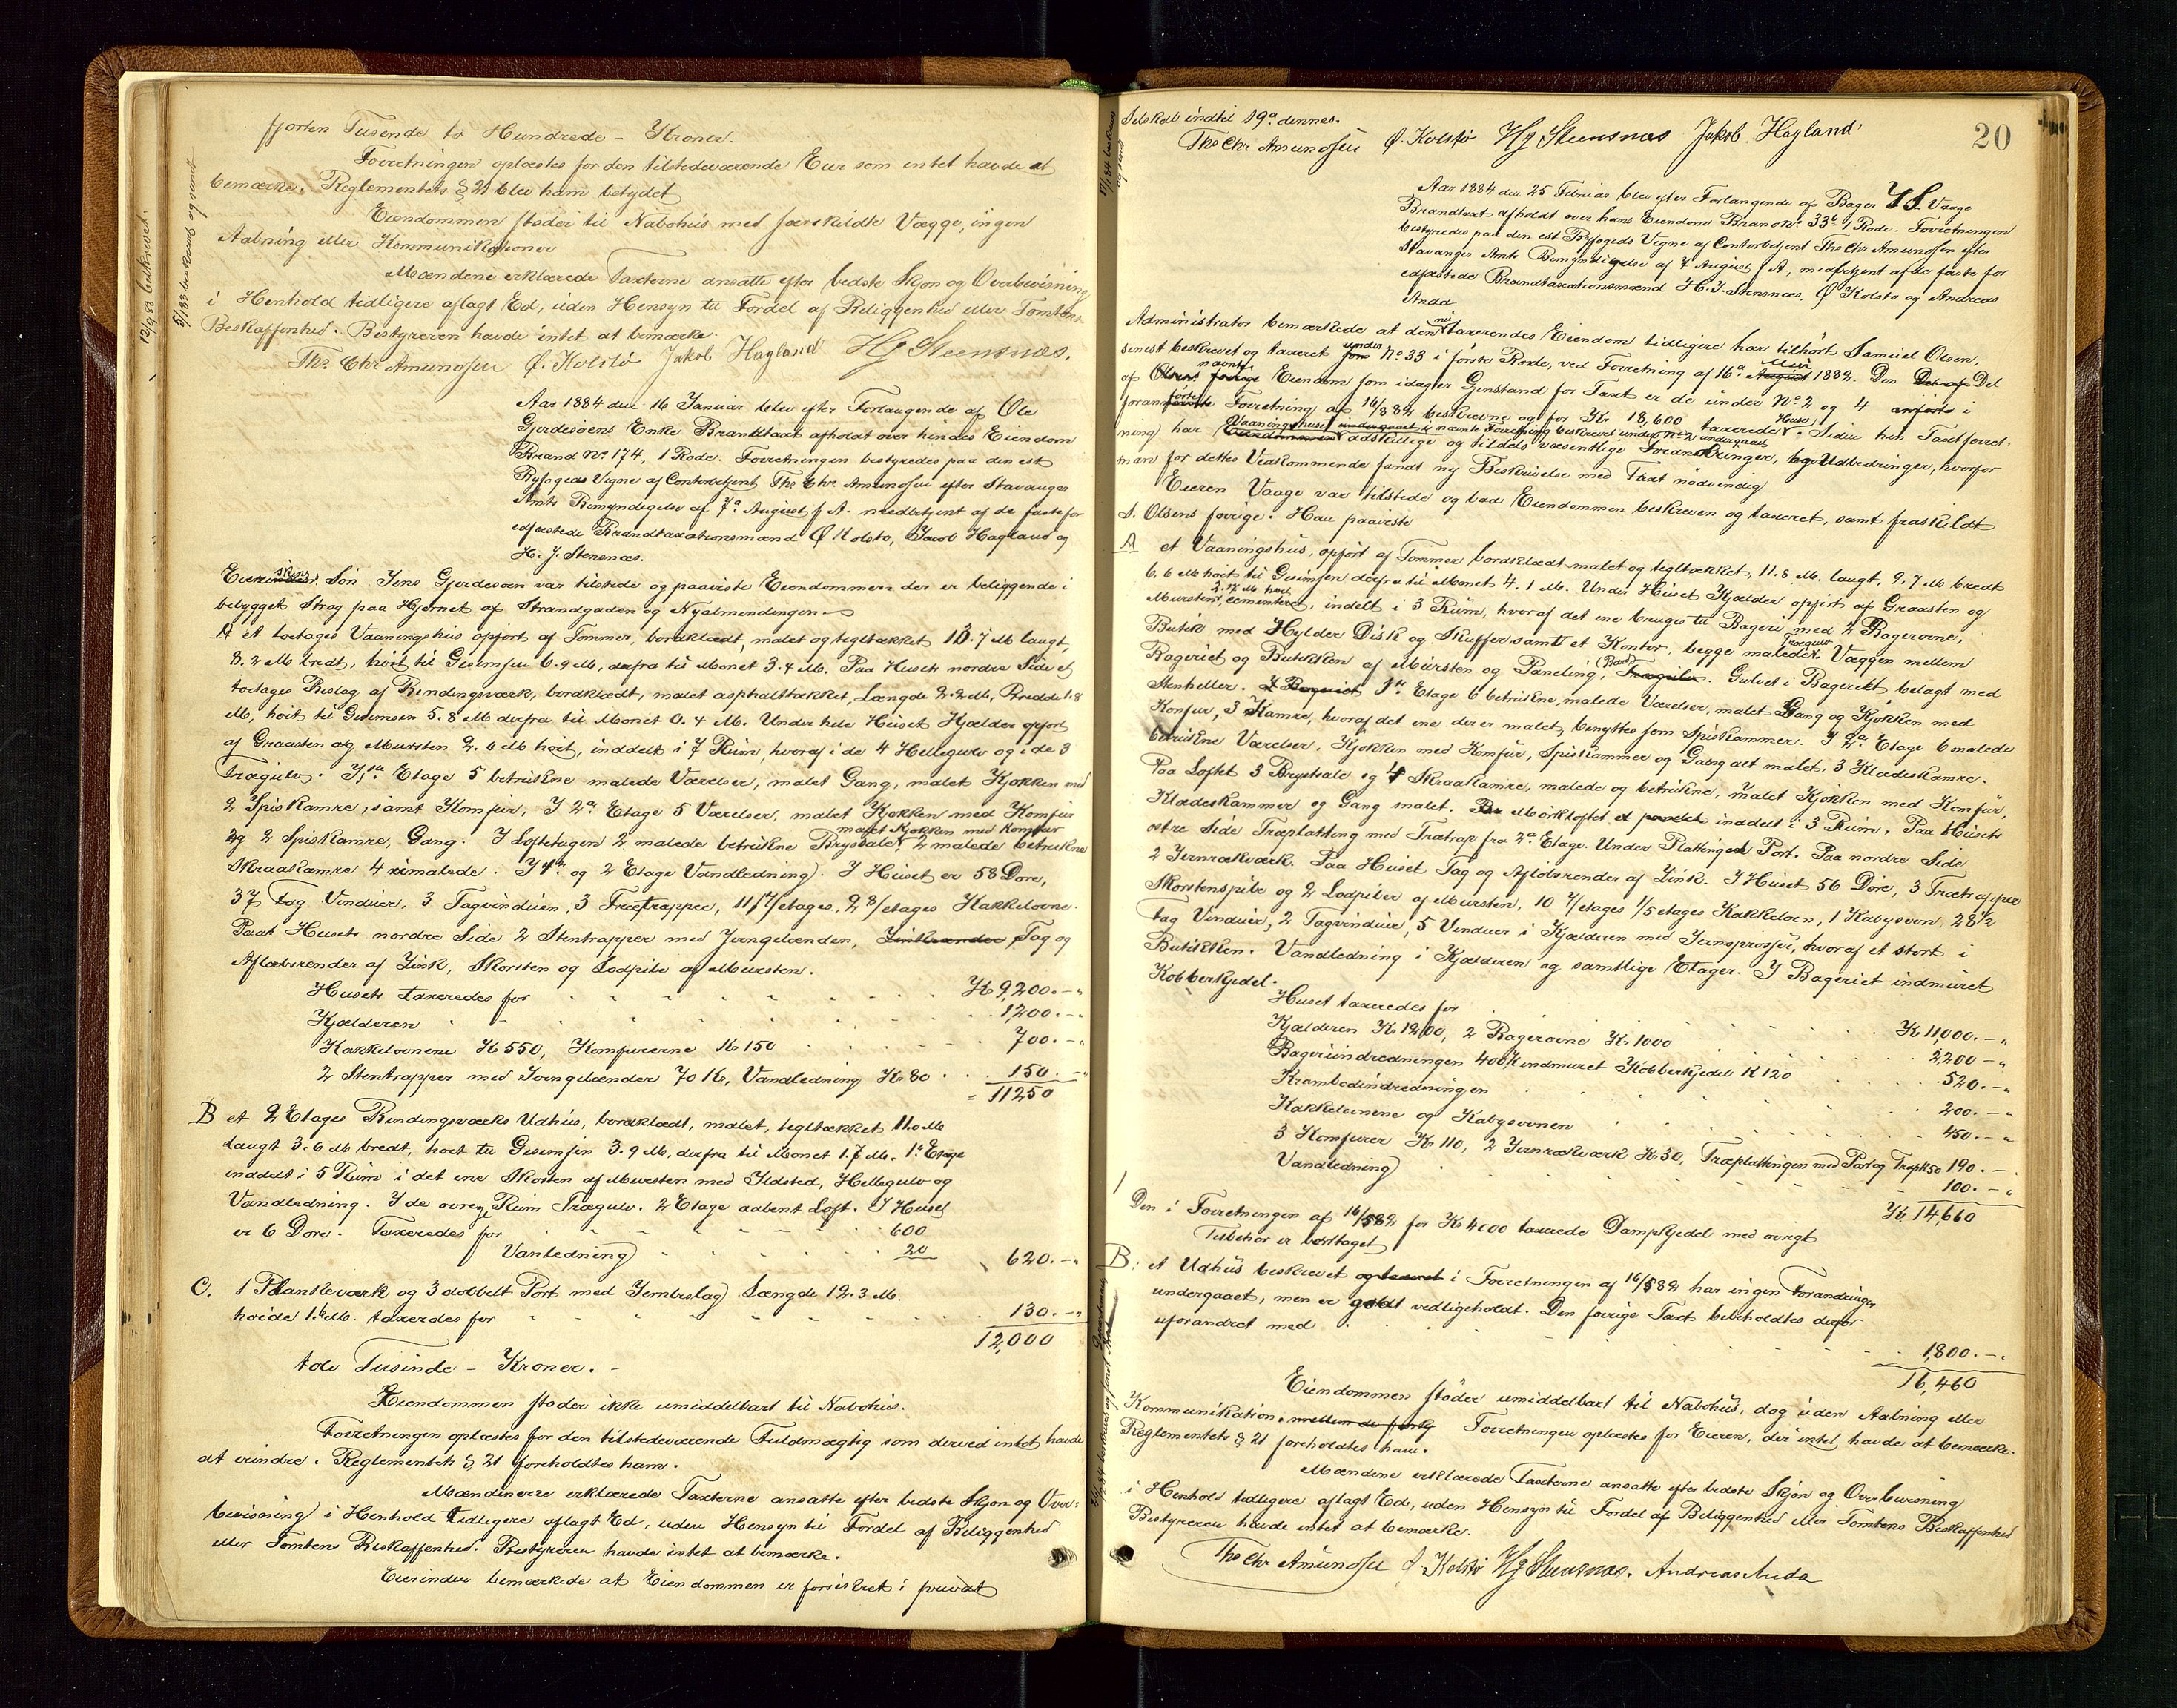 fjorten Tusende to Hundrede – Kroner.
Forretningen oplæstes for den tilstedeværende Eier som intet havde at
bemærke. Reglementets § 21 blev ham betydet
Eiendommen støder til Nabohus med særskildte Vægge, ingen
Aabning eller Kommunikationer
Mændene erklærede Taxterne ansatte efter bedste Skjøn og Overbevisning
i Henhold tidligere aflagt Ed, uden Hensyn til Fordel af Beliggenhed eller Tomtens
Beskaffenhed. Bestyreren havde intet at bemærke.
Ths. Chr Amundsen Ø. Kolstø Jakob Hagland HJ Steensnæs.
Aar 1884 den 16 Januar blev efter Forlangende af Ole
Gjerdesøens Enke Brandtaxt afholdt over hendes Eiendom
Brand No 174, 1 Rode. Forretningen bestyredes paa den est
Byfogeds Vegne af Contorbetjent Ths Chr Amundsen efter Stavanger
Amts Bemyndigelse af 7de August f A. medbetjent af de faste for
edfæstede Brandtaxationsmænd Ø Kolstø, Jacob Hagland og
H. J. Stensnæs.
Eierindens Søn Jens Gjerdesøen var tilstede og paaviste Eiendommen der er beliggende i
bebygget Strøg paa Hjørnet af Strandgaden og Nyalmendingen
A et toetages Vaaningshus opført af Tømmer, bordklædt, malet og tegltækket 10.7 M langt,
8.2 M bredt, høit til Gesimsen 6.9 M, derfra til Mønet 3.4 M. Paa Husets nordre Side et
toetages Bislag af Bindingsværk, bordklædt, malet asphalttækket, Længde 2.2 M, Bredde 1.8
M, høit til Gesimsen 5.8 M derfra til Mønet 0.4 M. Under hele Huset Kjælder opført
af Graasten og Mursten 2.6 M høit, inddelt i 7 Rum, hvoraf i de 4 Hellegulv og i de 3
Trægulv. I 1ste Etage 5 betrukne malede Værelser, malet Gang, malet Kjøkken med
2 Spiskamre, samt Komfur, I 2den Etage 5 Værelser, malet Kjøkken med Komfur
og 2 Spiskamre, Gang. I Loftetagen 2 malede betrukne Brystsale, malet Kjøkken med Komfur 2 malede betrukne
Skraakamre 4 umalede. I 1ste og 2 Etage Vandledning. I Huset er 58 Døre,
37 Fag Vinduer, 3 Tagvinduer, 3 Trætrapper, 11 1/etages, 2 8/etages Kakkelovne.
Paa Husets nordre Side 2 Stentrapper med Jerngelænder, Tag og
Afløbsrender af Zink, Skorsten og Lodpibe af Mursten.
Husets taxeredes for Kr 9,200. –
Kjælderen 1,200. –
Kakkelovnene K 550, Komfurerne Kr 150 700. –
2 Stentrapper med Jerngelænder 70 K, Vandledning Kr 80 150. –
= 11250
B et 2 Etages Bindingsværks Udhus, bordklædt, malet, tegltækket 11.0 M
langt 3.6 M bredt, høit til Gesimsen 3.9 M, derfra til Mønet 1.7 M. 1ste Etage
inddelt i 5 Rum i det ene Skorsten af Mursten med Ildsted, Hellegulv og
Vandledning. I de øvrige Rum Trægulv. 2 Etage aabent Loft. I Huset
er 6 Døre. Taxeredes for 600
Vanledning 20 620. –
C. 1 Plankeværk og 3 dobbelt Port med Jernbeslag Længde 12.3 M.
høide 1.6 M. taxeredes for 130. –
12,000
tolv Tusinde – Kroner. –
Eiendommen støder ikke umiddelbart til Nabohus.
Forretningen oplæstes for den tilstedeværende Fuldmægtig som derved intet havde
at erindre. Reglementets § 21 foreholdtes ham.
Mændenerne erklærede Taxterne ansatte efter bedste Skjøn og Over-
bevisning i Henhold tidligere aflagt Ed, uden Hensyn til Fordel af Beliggenhed
eller Tomtens Beskaffenhed. Bestyreren havde intet at bemærke.
Eierinden bemærkede at Eiendommen er forsikret i privat
12/9 83 beskrevet.
5/1 83 beskrevet og sendt
20
Selskab indtil 19de dennes.
Ths Chr Amundsen Ø. Kolstø HJ Steensnæs Jakob Hagland
Aar 1884 den 25 Februar blev efter Forlangende af Bager Vaage
Brandtaxt afholdt over hans Eiendom Brand No. 33b 1 Rode. Forretningen
bestyredes paa den est Byfogeds Vegne af Contorbetjent Ths Chr Amundsen efter
Stavanger Amts Bemyndigelse af 7 August f A., medbetjent af de faste for
edfæstede Brandtaxationsmænd H. J. Stensnæs, Ø Kolstø og Andreas
Anda
Administrator bemærkede at den nu taxerendes Eiendom tidligere har tilhørt Samuel Olsen,
senest beskrevet og taxeret under No 33 i første Rode, ved Forretning af 16de Mai 1882. Den Del
af nævnte Eiendom som idag er Gjenstand for Taxt er de under No 2 og 4 i
foranførte Forretning af 16/5 82 beskrevne og for Kr 18,600 taxerede Huse. Siden hin Taxtforret-
ning har Vaaningshuset i nævnte Forretning beskrevet under No 2 undergaaet adskillige og tildels væsentlige Forandringer, og Udbedringer, hvorfor
man for dettes Vedkommende fandt ny Beskrivelse med Taxt nødvendig
Eieren Vaage var tilstede og bad Eiendommen beskreven og taxeret, samt fraskildt
S. Olsens forrige. Han paaviste
A et Vaaningshus, opført af Tømmer bordklædt malet og tegltækket, 11.8 M. langt, 9.7 M bredt
6.6 M høit til Gesimsen derfra til Mønet 4.1 M. Under Huset Kjælder opført af Graasten og
Mursten, 2.17 M høit cementeret, indelt i 3 Rum, hvoraf det ene bruges til Bageri med 2 Bagerovne,
Butik med Hylder Disk og Skuffer samt et Kontor, begge malede Trægulv. Væggen mellem
Bageriet og Butikken af Mursten og Paneling, (Bord). Gulvet i Bageriet belagt med
Stenheller. I 1ste Etage 6 betrukne, malede Værelser, malet Gang og Kjøkken med
Komfur, 3 Kamre, hvoraf det ene der er malet, benyttes som Spiskammer. I 2den Etage 6 malede
betrukne Værelser, Kjøkken med Komfur, Spiskammer og Gang alt malet, 3 Klædeskamre.
Paa Loftet 3 Brystsale og 4 Skraakamre, malede og betrukne, malet Kjøkken med Komfur,
Klædeskammer og Gang malet. Mørkloftet inddelt i 3 Rum. Paa Husets
østre Side Træplatting med Trætrap fra 2den Etage. Under Plattingen Port. Paa nordre Side
2 Jernrækværk. Paa Huset Tag og Afløbsrender af Zink. I Huset 56 Døre, 3 Trætrapper
Skorstenspibe og 2 Lodpiber af Mursten, 10 7/etages 1/5 etages Kakkelovn, 1 Kabysovn, 28 1/2
Fag Vinduer, 2 Tagvinduer, 5 Vinduer i Kjælderen med Jernsprosser, hvoraf et stort i
Butikken. Vandledning i Kjælderen og samtlige Etager. I Bageriet indmuret
Kobberkjedel.
Huset taxeredes for Kr 11,000. –
Kjælderen Kr 1200, 2 Bagerovne Kr 1000 2,200 –
Bageriindredningen 400 K indmuret Kobberkjedel K 120 520. –
Krambodindredningen 200. –
Kakkelovnene og Kabysovnen 450. –
3 Komfurer Kr 110, 2 Jernrækværk Kr 30, Træplattingen med Port og Trap K 50 190. –
Vandledning 100. –
Kr 14,660
Den i Forretningen af 16/5 82 for Kr 4000 taxerede Dampkjedel med øvrigt
Tilbehør er borttaget
B: et Udhus beskrevet i Forretningen af 16/5 82 har ingen Forandringer
undergaaet, men er godt vedligeholdt. Den forrige Taxt beholdtes derfor
uforandret med 1,800. –
16,460
Eiendommen støder umiddelbart til Nabohus, dog uden Aabning eller
Kommunikation. Forretningen oplæstes for Eieren, der intet havde at bemærke.
Reglementets § 21 foreholdtes ham.
Mændene erklærede Taxterne ansatte efter bedste Skjøn og Overbevisning
i Henhold tidligere aflagt Ed, uden Hensyn til Fordel af Beliggenhed eller Tomtens Beskaffenhed
Bestyreren havde intet at bemærke.
Ths Chr Amundsen Ø. Kolstø HJ Steensnæs. Andreas Anda